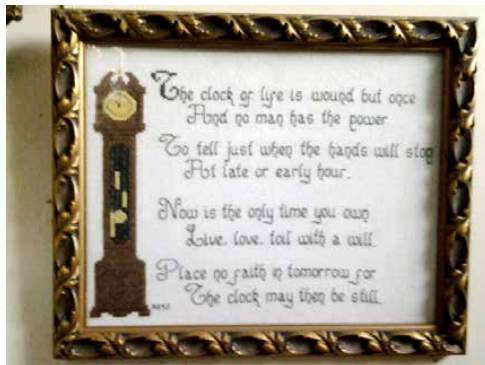 The clock of life is wound but once
And no man has the power
To tell just when the hands will stop
At late or early hour.
Now is the only time you own
Live, love, toil with a will.
Place no faith in tomorrow for
The clock may then be still.